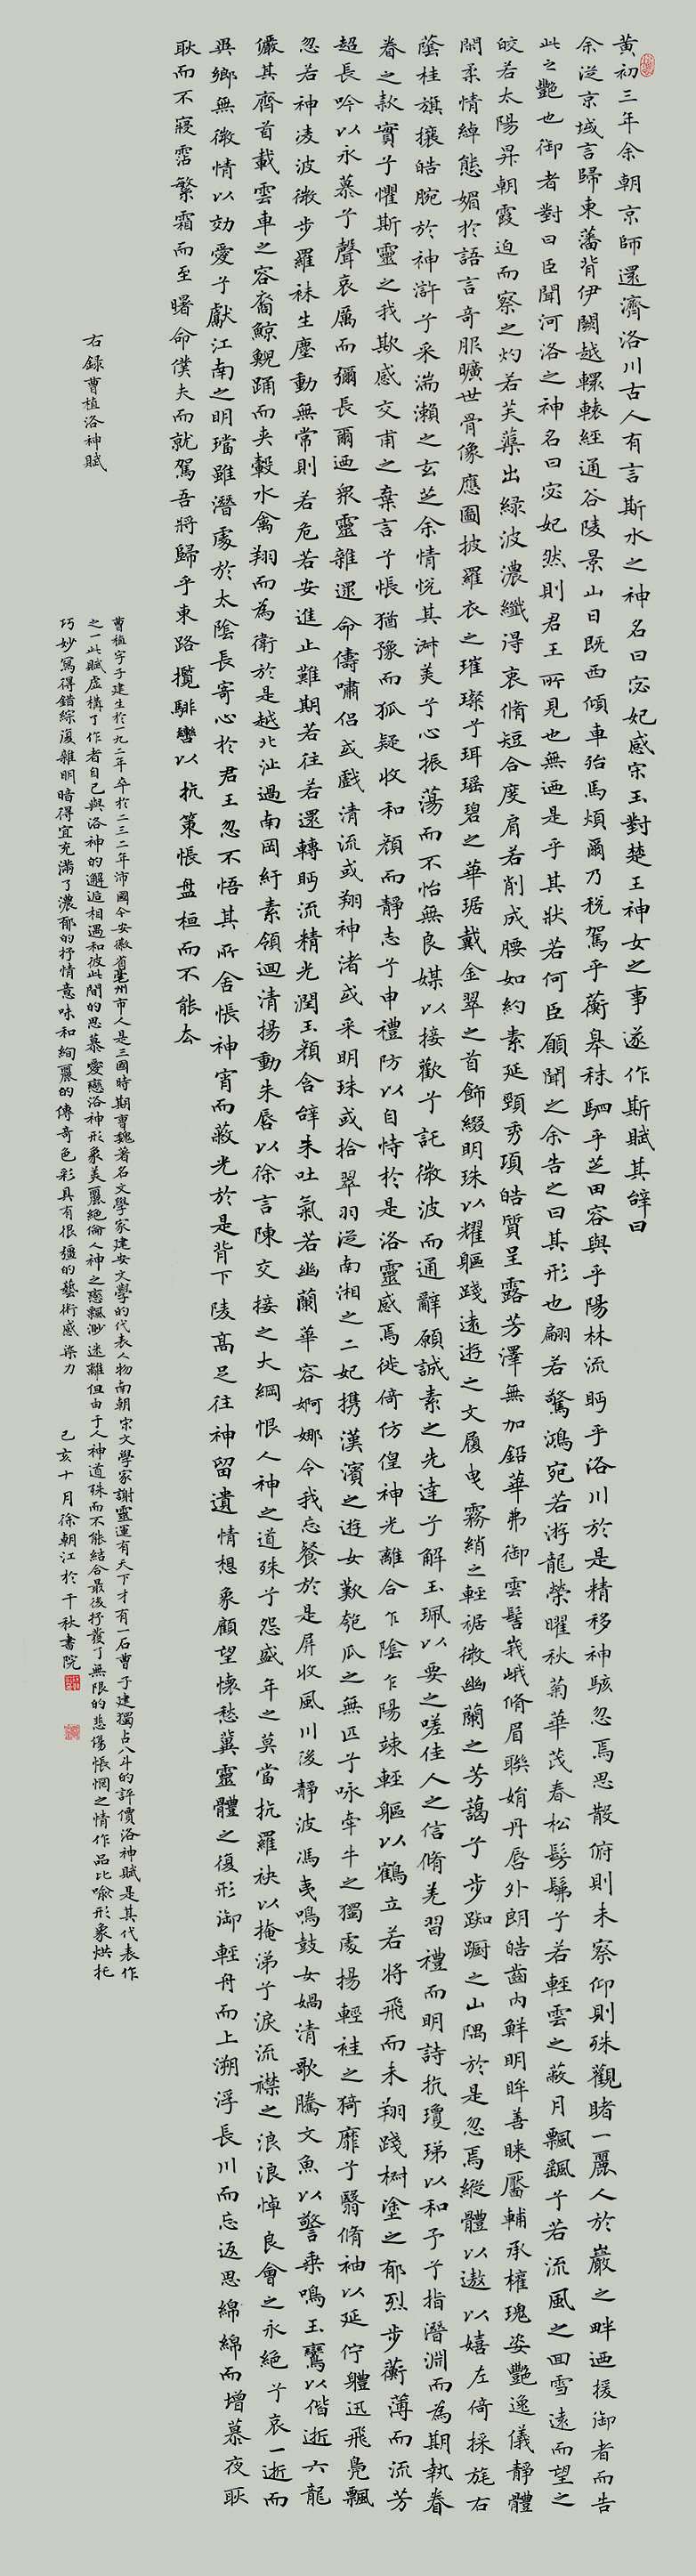 黃初三年余朝京師還濟洛川古人有言斯水之神名曰宓妃感宋玉對楚王神女之事遂作斯賦其辝曰
余從京域言歸東藩背伊闕越轘轅經通谷陵景山日既西傾車殆馬煩爾乃稅駕乎蘅皋秣駟乎芝田容與乎陽林流眄乎洛川於是精移神駭忽焉思散俯則未察仰則殊觀睹一麗人於巖之畔迺援御者而告
之曰爾有覿於彼者乎彼何人斯若此之艷也御者對曰臣聞河洛之神名曰宓妃然則君王所見也無迺是乎其狀若何臣願聞之余告之曰其形也翩若驚鴻宛若游龍榮曜秋菊華茂春松髣髴兮若輕雲之蔽月飄颻兮若流風之回雪遠而望之
皎若太陽昇朝霞迫而察之灼若芙蕖出綠波濃纖得衷脩短合度肩若削成腰如約素延頸秀項皓質呈露芳澤無加鉛華弗御雲髻峩峨脩眉聯娟丹唇外朗皓齒內鮮明眸善睐靨輔承權瑰姿艷逸儀靜體
閑柔情綽態媚於語言奇服曠世骨像應圖披羅衣之璀璨兮珥瑤碧之華琚戴金翠之首飾綴明珠以耀軀踐遠遊之文履曳霧綃之輕裾微幽蘭之芳藹兮步踟躕之山隅於是忽焉縱體以遨以嬉左倚採旄右
蔭桂旗攘皓腕於神滸兮采湍瀨之玄芝余情悅其淑美兮心振蕩而不怡無良媒以接歡兮託微波而通辭願誠素之先達兮解玉珮以要之嗟佳人之信脩羌習禮而明詩抗瓊珶以和予兮指潛淵而為期執眷
眷之款實兮懼斯靈之我欺感交甫之棄言兮悵猶豫而狐疑收和顏而靜志兮申禮防以自恃於是洛靈感焉徙倚仿偟神光離合乍陰乍陽竦輕軀以鶴立若將飛而未翔踐椒塗之郁烈步蘅薄而流芳
超長吟以永慕兮聲哀厲而彌長爾迺衆靈雜遝命儔嘯侶或戲清流或翔神渚或采明珠或拾翠羽從南湘之二妃携漢濱之遊女歎匏瓜之無匹兮咏牽牛之獨處揚輕袿之猗靡兮翳脩袖以延佇體迅飛鳧飄
忽若神淩波微步羅袜生塵動無常則若危若安進止難期若往若還轉眄流精光潤玉顏含辝未吐氣若幽蘭華容婀娜令我忘餐於是屏收風川後靜波馮夷鳴鼓女媧清歌騰文魚以警乘鳴玉鸞以偕逝六龍
儼其齊首載雲車之容裔鯨鯢踊而夾轂水禽翔而為衛於是越北沚過南岡紆素領迴清揚動朱唇以徐言陳交接之大綱恨人神之道殊兮怨盛年之莫當抗羅袂以掩涕兮淚流襟之浪浪悼良會之永絕兮哀一逝而
異鄉無微情以効愛兮獻江南之明璫雖潛處於太陰長寄心於君王忽不悟其所舍悵神宵而蔽光於是背下陵高足往神留遺情想象顧望懷愁冀靈體之復形御輕舟而上溯浮長川而忘返思綿綿而增慕夜耿
耿而不寐霑繁霜而至曙命僕夫而就駕吾將歸乎東路攬騑轡以抗策悵盘桓而不能去
右錄曹植洛神賦
曹植字子建生於一九二年卒於二三二年沛國今安徽省亳州市人是三國時期曹魏著名文學家建安文學的代表人物南朝宋文學家謝靈運有天下才有一石曹子建獨占八斗的評價洛神賦是其代表作
之一此賦虛構了作者自己與洛神的邂逅相遇和彼此間的思慕愛戀洛神形象美麗絕倫人神之戀飄渺迷離但由于人神道殊而不能結合最後抒發了無限的悲傷悵惘之情作品比喻形象烘托
巧妙寫得錯綜復雜明暗得宜充滿了濃郁的抒情意味和絢麗的傳奇色彩具有很強的藝術感染力 己亥十月徐朝江於千秋書院